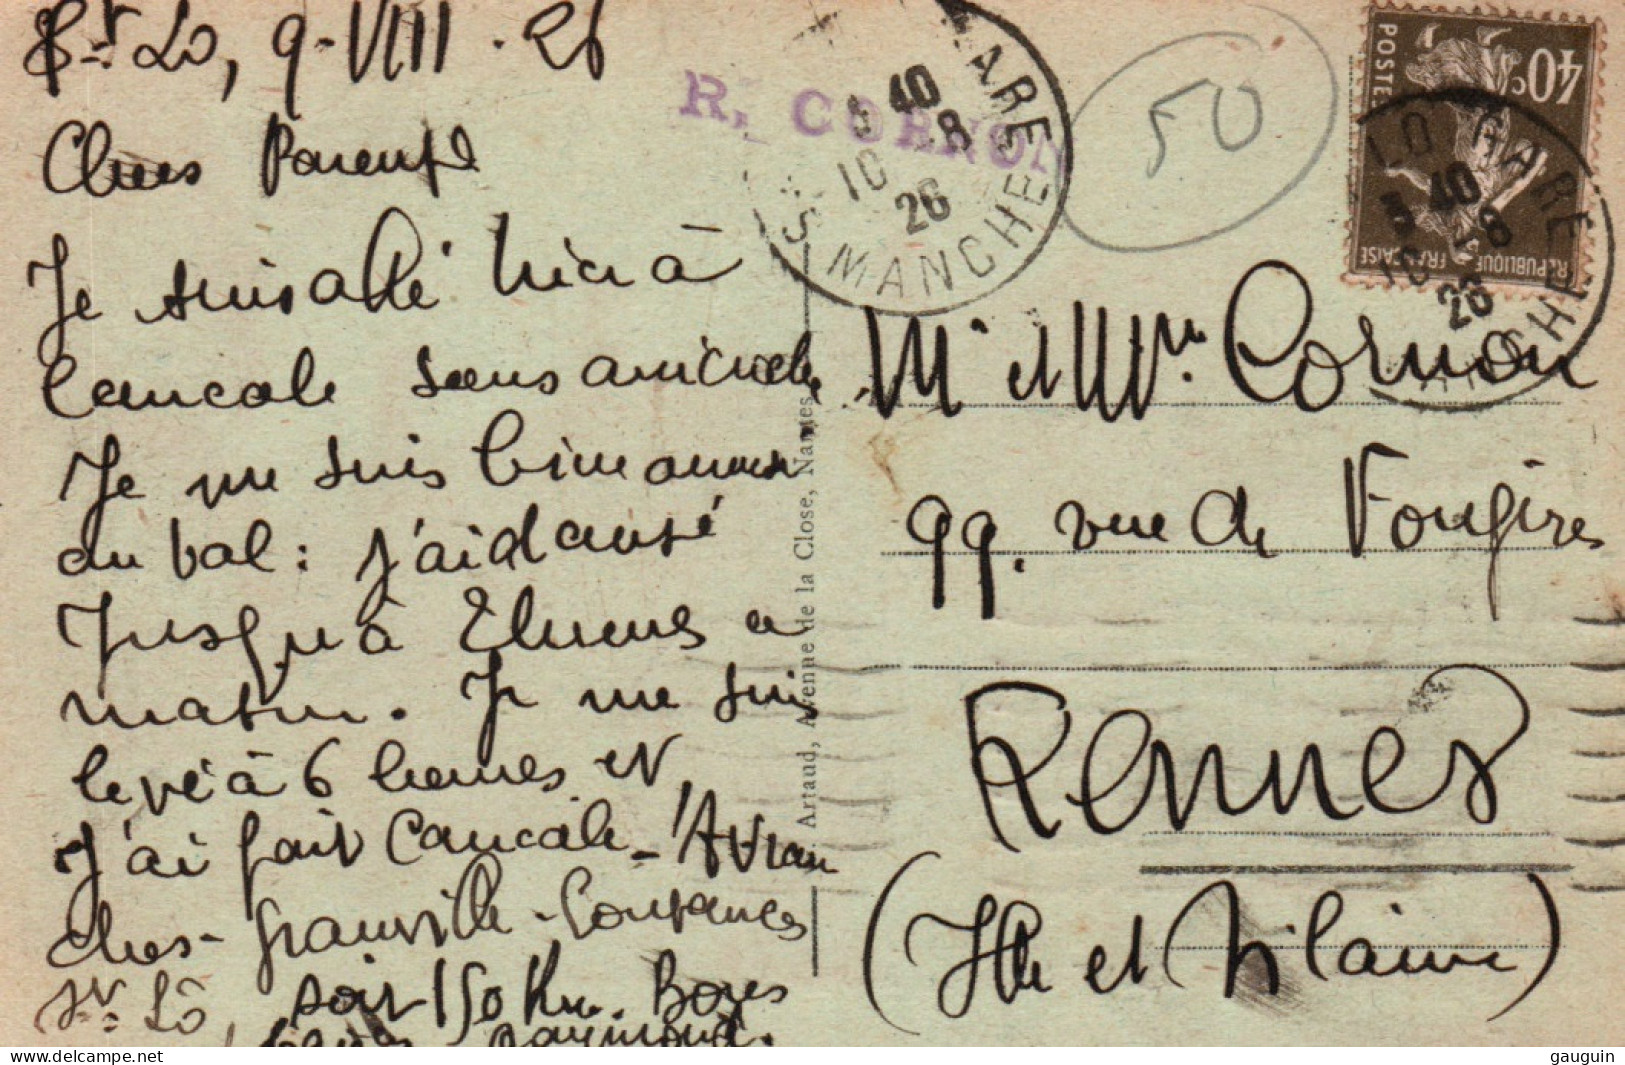 St Lô, 9-VIII-26
Chers Parents
Je suis allé hier à
Cancale sans anicroche
Je me suis bien amusé
au bal : j'ai dansé
jusqu'à 2 heures
matin. Je me suis
levé à 6 heures et
j'ai fait Cancale - Avran
ches - Granville - Coutances
St. Lô, soit 150 Km. Bons
baisers Raymond.
R. CORNON
GARE
40
10 8
26
MANCHE
50
POSTES
40c
REPUBLIQUE FRANÇAISE
LO GARE
40
10 8
26
Artaud, Avenue de la Close, Nantes
Mr et Mme Cornon
99. rue de Fougères
Rennes
(Ille et Vilaine)
https://www.delcampe.net
gauguin